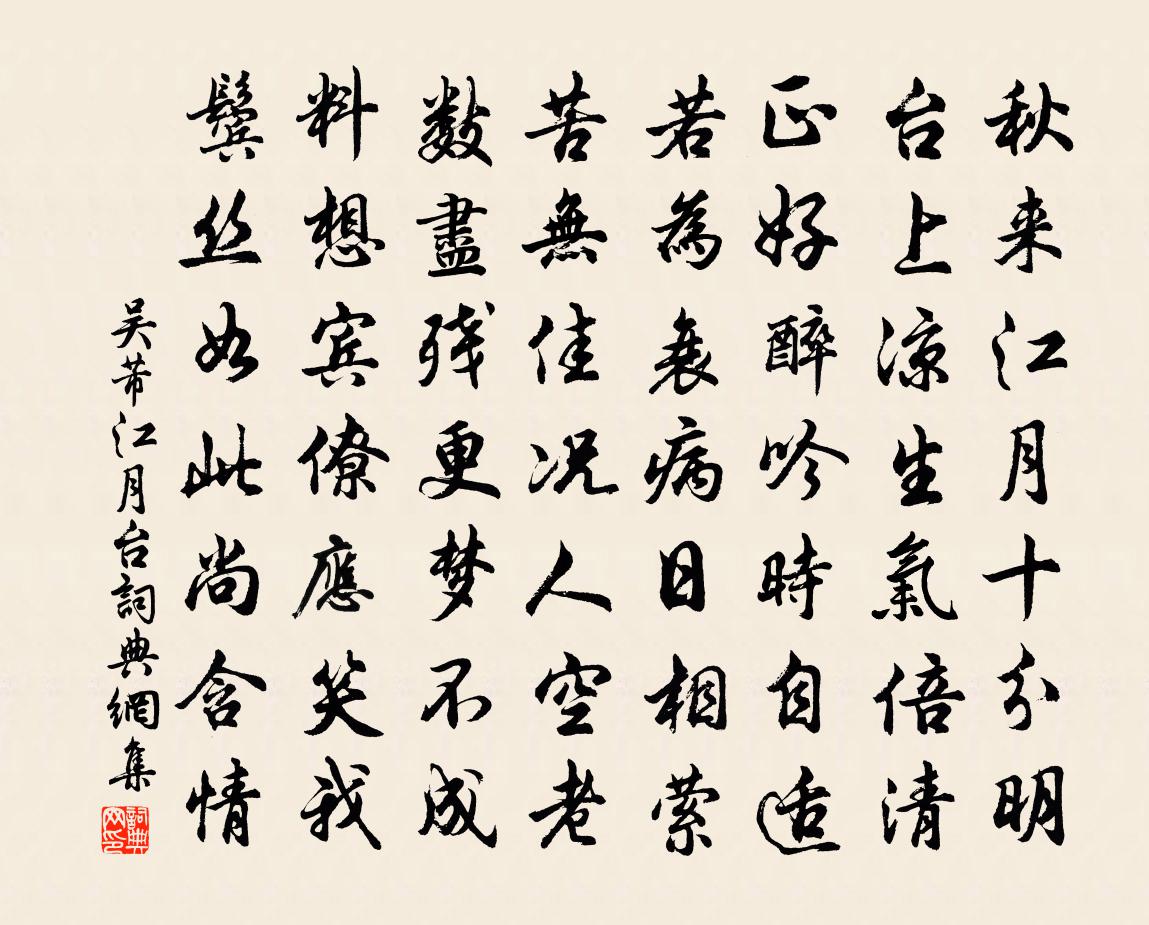 秋来江月十分明
台上凉生氣倍清
正好醉吟時自适
若為衰病日相萦
苦無佳况人空老
數盡残更梦不成
料想宾僚應笑我
鬓丝如此尚含情
吴芾江月台詞典網集
詞典网印